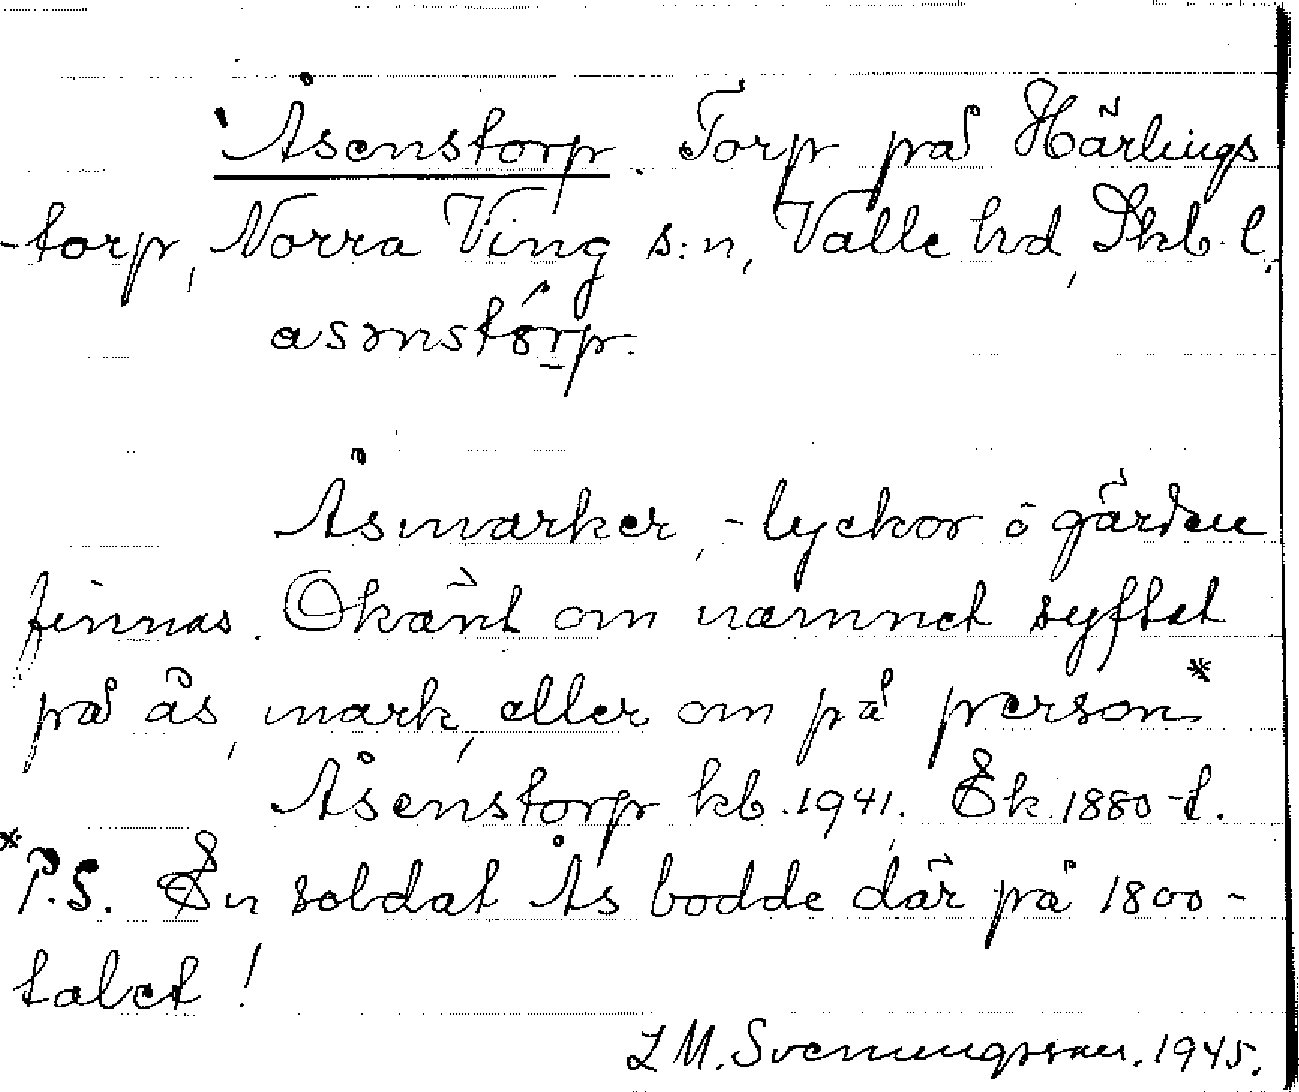 'Åsenstorp. Torp på Härlings
-torp, Norra Ving s:n, Valle hd, Skb. l.
asənstórp.
Åsmarker, -lyckor o gärden
finnas. Okänt om namnet syftat
på ås, mark, eller om på person*
Åsenstorp kb. 1941. Ek. 1880-t.
*P.S. En soldat Ås bodde där på 1800-
talet!
L M. Svenungsson. 1945.